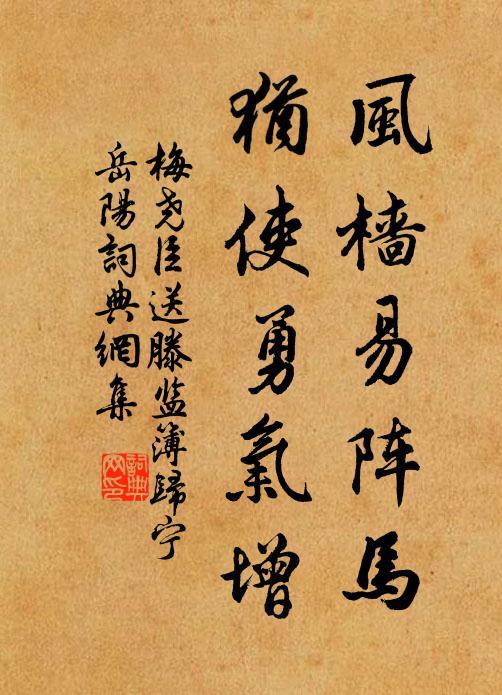 風檣易阵馬
猶使勇氣增
梅尧臣送滕监簿歸宁
岳陽詞典網集
詞典网印